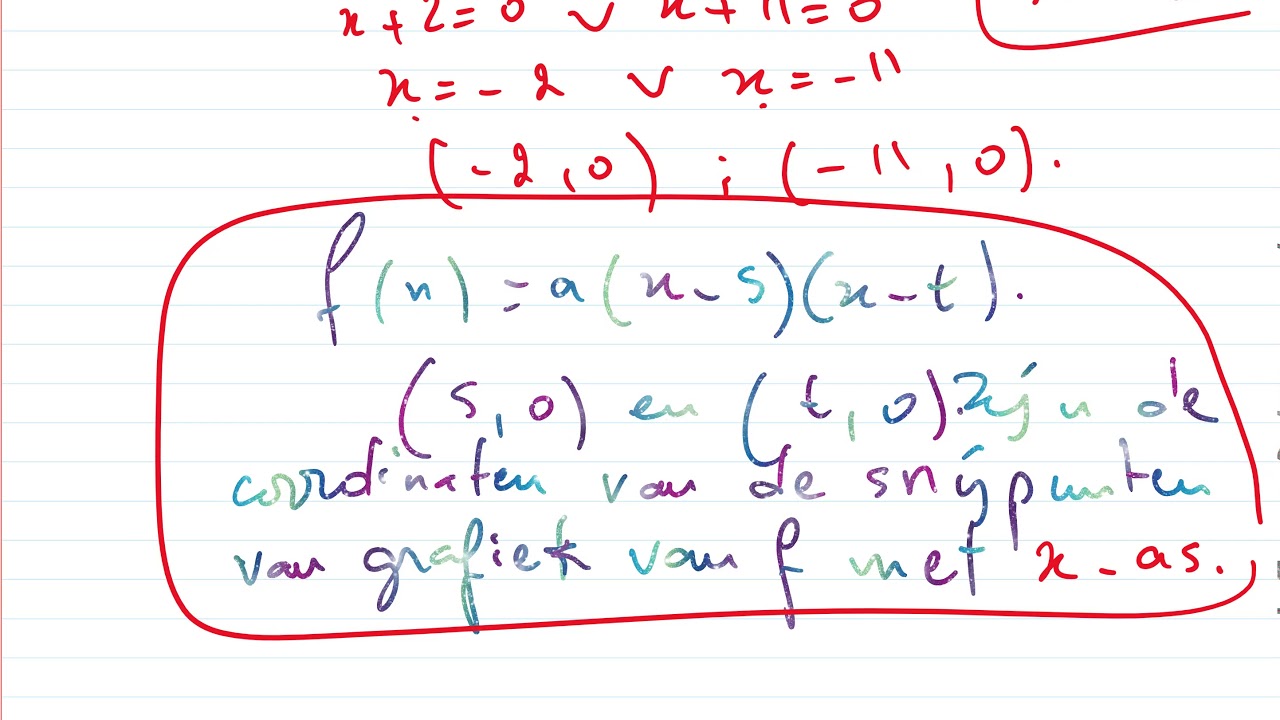 x + 2 = 0 ∨ x + 11 = 0
x = - 2 ∨ x = - 11
(-2,0) ; (-11,0).
f(x) = a(x-s)(x-t).
(s,0) en (t,0) zijn de
coordinaten van de snijpunten
van grafiek van f met x-as.